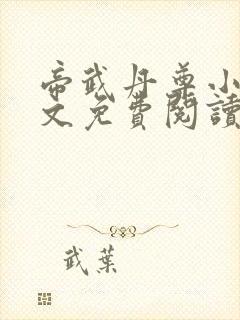 帝武丹尊小
文免費閱讀
武葉